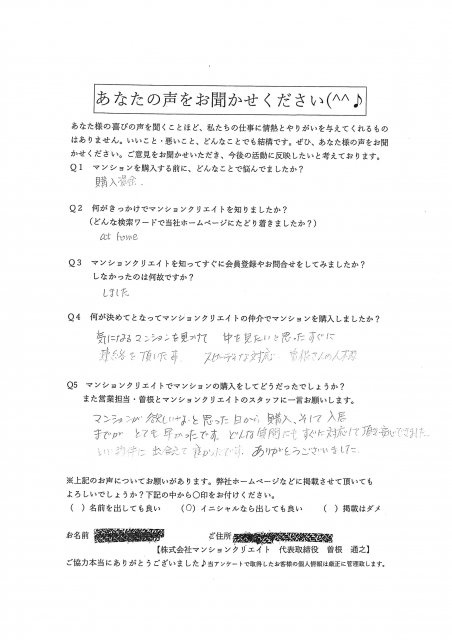 あなたの声をお聞かせください(^^♪
あなた様の喜びの声を聞くことほど、私たちの仕事に情熱とやりがいを与えてくれるもの
はありません。いいこと・悪いこと、どんなことでも結構です。ぜひ、あなた様の声をお聞
かせください。ご意見をお聞かせいただき、今後の活動に反映したいと考えております。
Q1 マンションを購入する前に、どんなことで悩んでましたか?
購入資金.
Q2 何がきっかけでマンションクリエイトを知りましたか?
(どんな検索ワードで当社ホームページにたどり着きましたか?)
at home
Q3 マンションクリエイトを知ってすぐに会員登録やお問合せをしてみましたか?
しなかったのは何故ですか?
しました
Q4 何が決めてとなってマンションクリエイトの仲介でマンションを購入しましたか?
気になるマンションを見つけて 中を見たいと思ったすぐに
連絡を頂いた事 スピーディな対応 曽根さんの人柄
Q5 マンションクリエイトでマンションの購入をしてどうだったでしょうか?
また営業担当・曽根とマンションクリエイトのスタッフに一言お願いします。
マンションが欲しいなと思った日から、購入、そして入居
までが とても早かったです。どんな質問にもすぐに対応して頂き安心できました
いい物件に出会えて良かったです。ありがとうございました
※上記のお声についてお願いがあります。弊社ホームページなどに掲載させて頂いても
よろしいでしょうか?下記の中から〇印をお付けください。
( ) 名前を出しても良い (〇) イニシャルなら出しても良い ( ) 掲載はダメ
お名前 ご住所
【株式会社マンションクリエイト 代表取締役 曽根 通之】
ご協力本当にありがとうございました♪当アンケートで取得したお客様の個人情報は厳正に管理致します。